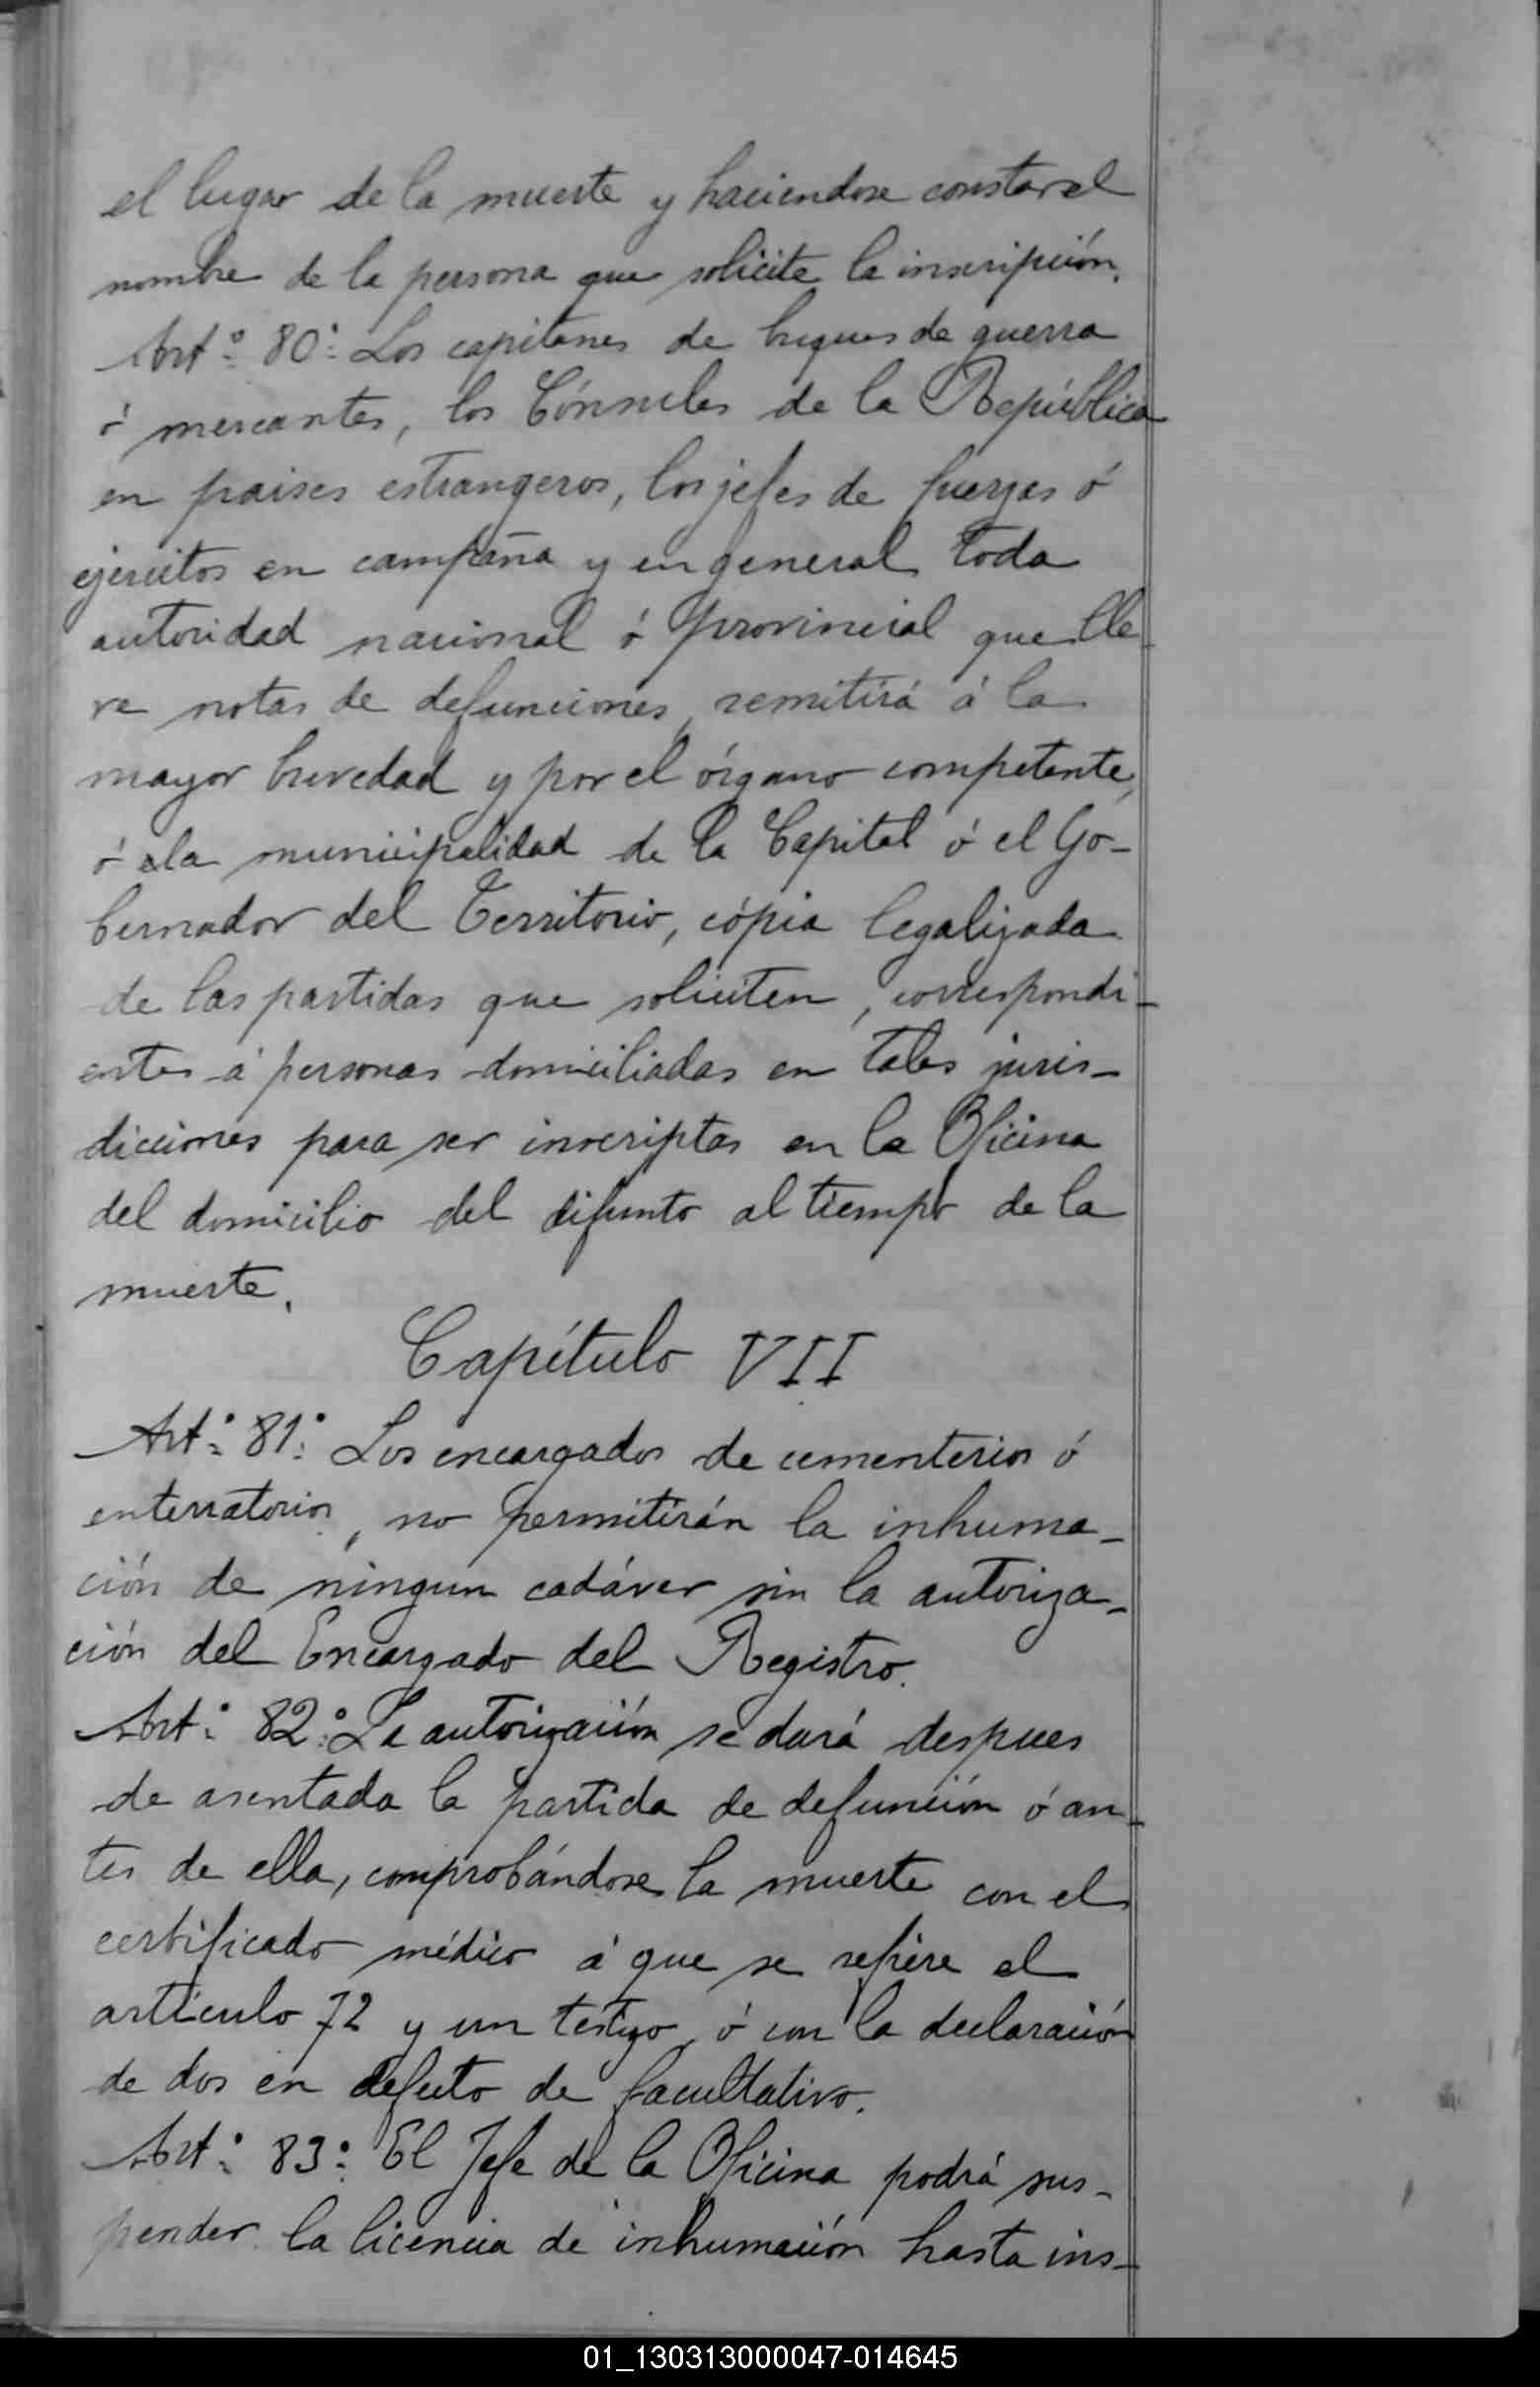 el lugar de la muerte y haciendose constar el
nombre de la persona que solicite la inscripción.
Art.º 80º Los capitanes de buques de guerra
ó mercantes, los Cónsules de la República
en paises estrangeros, los jefes de fuerzas ó
ejercitos en campaña y en general toda
autoridad nacional ó provincial que lle-
ve notas de defunciones, remitirá á la
mayor brevedad y por el órgano competente,
ó a la municipalidad de la Capital ó el Go-
bernador del Territorio, cópia legalizada
de las partidas que soliciten, correspondi-
entes á personas domiciliadas en tales juris-
dicciones para ser inscriptas en la Oficina
del domicilio del difunto al tiempo de la
muerte.
Capítulo VII
Art.º 81º Los encargados de cementerios ó
enterratorios, no permitirán la inhuma-
ción de ningun cadáver sin la autoriza-
ción del Encargado del Registro.
Art.º 82º La autorización se dará despues
de asentada la partida de defunción ó an-
tes de ella, comprobándose la muerte con el
certificado médico á que se refiere el
artículo 72 y un testigo, ó con la declaración
de dos en defecto de facultativo.
Art.º 83º El Jefe de la Oficina podrá sus-
pender la licencia de inhumación hasta ins-
01_130313000047-014645